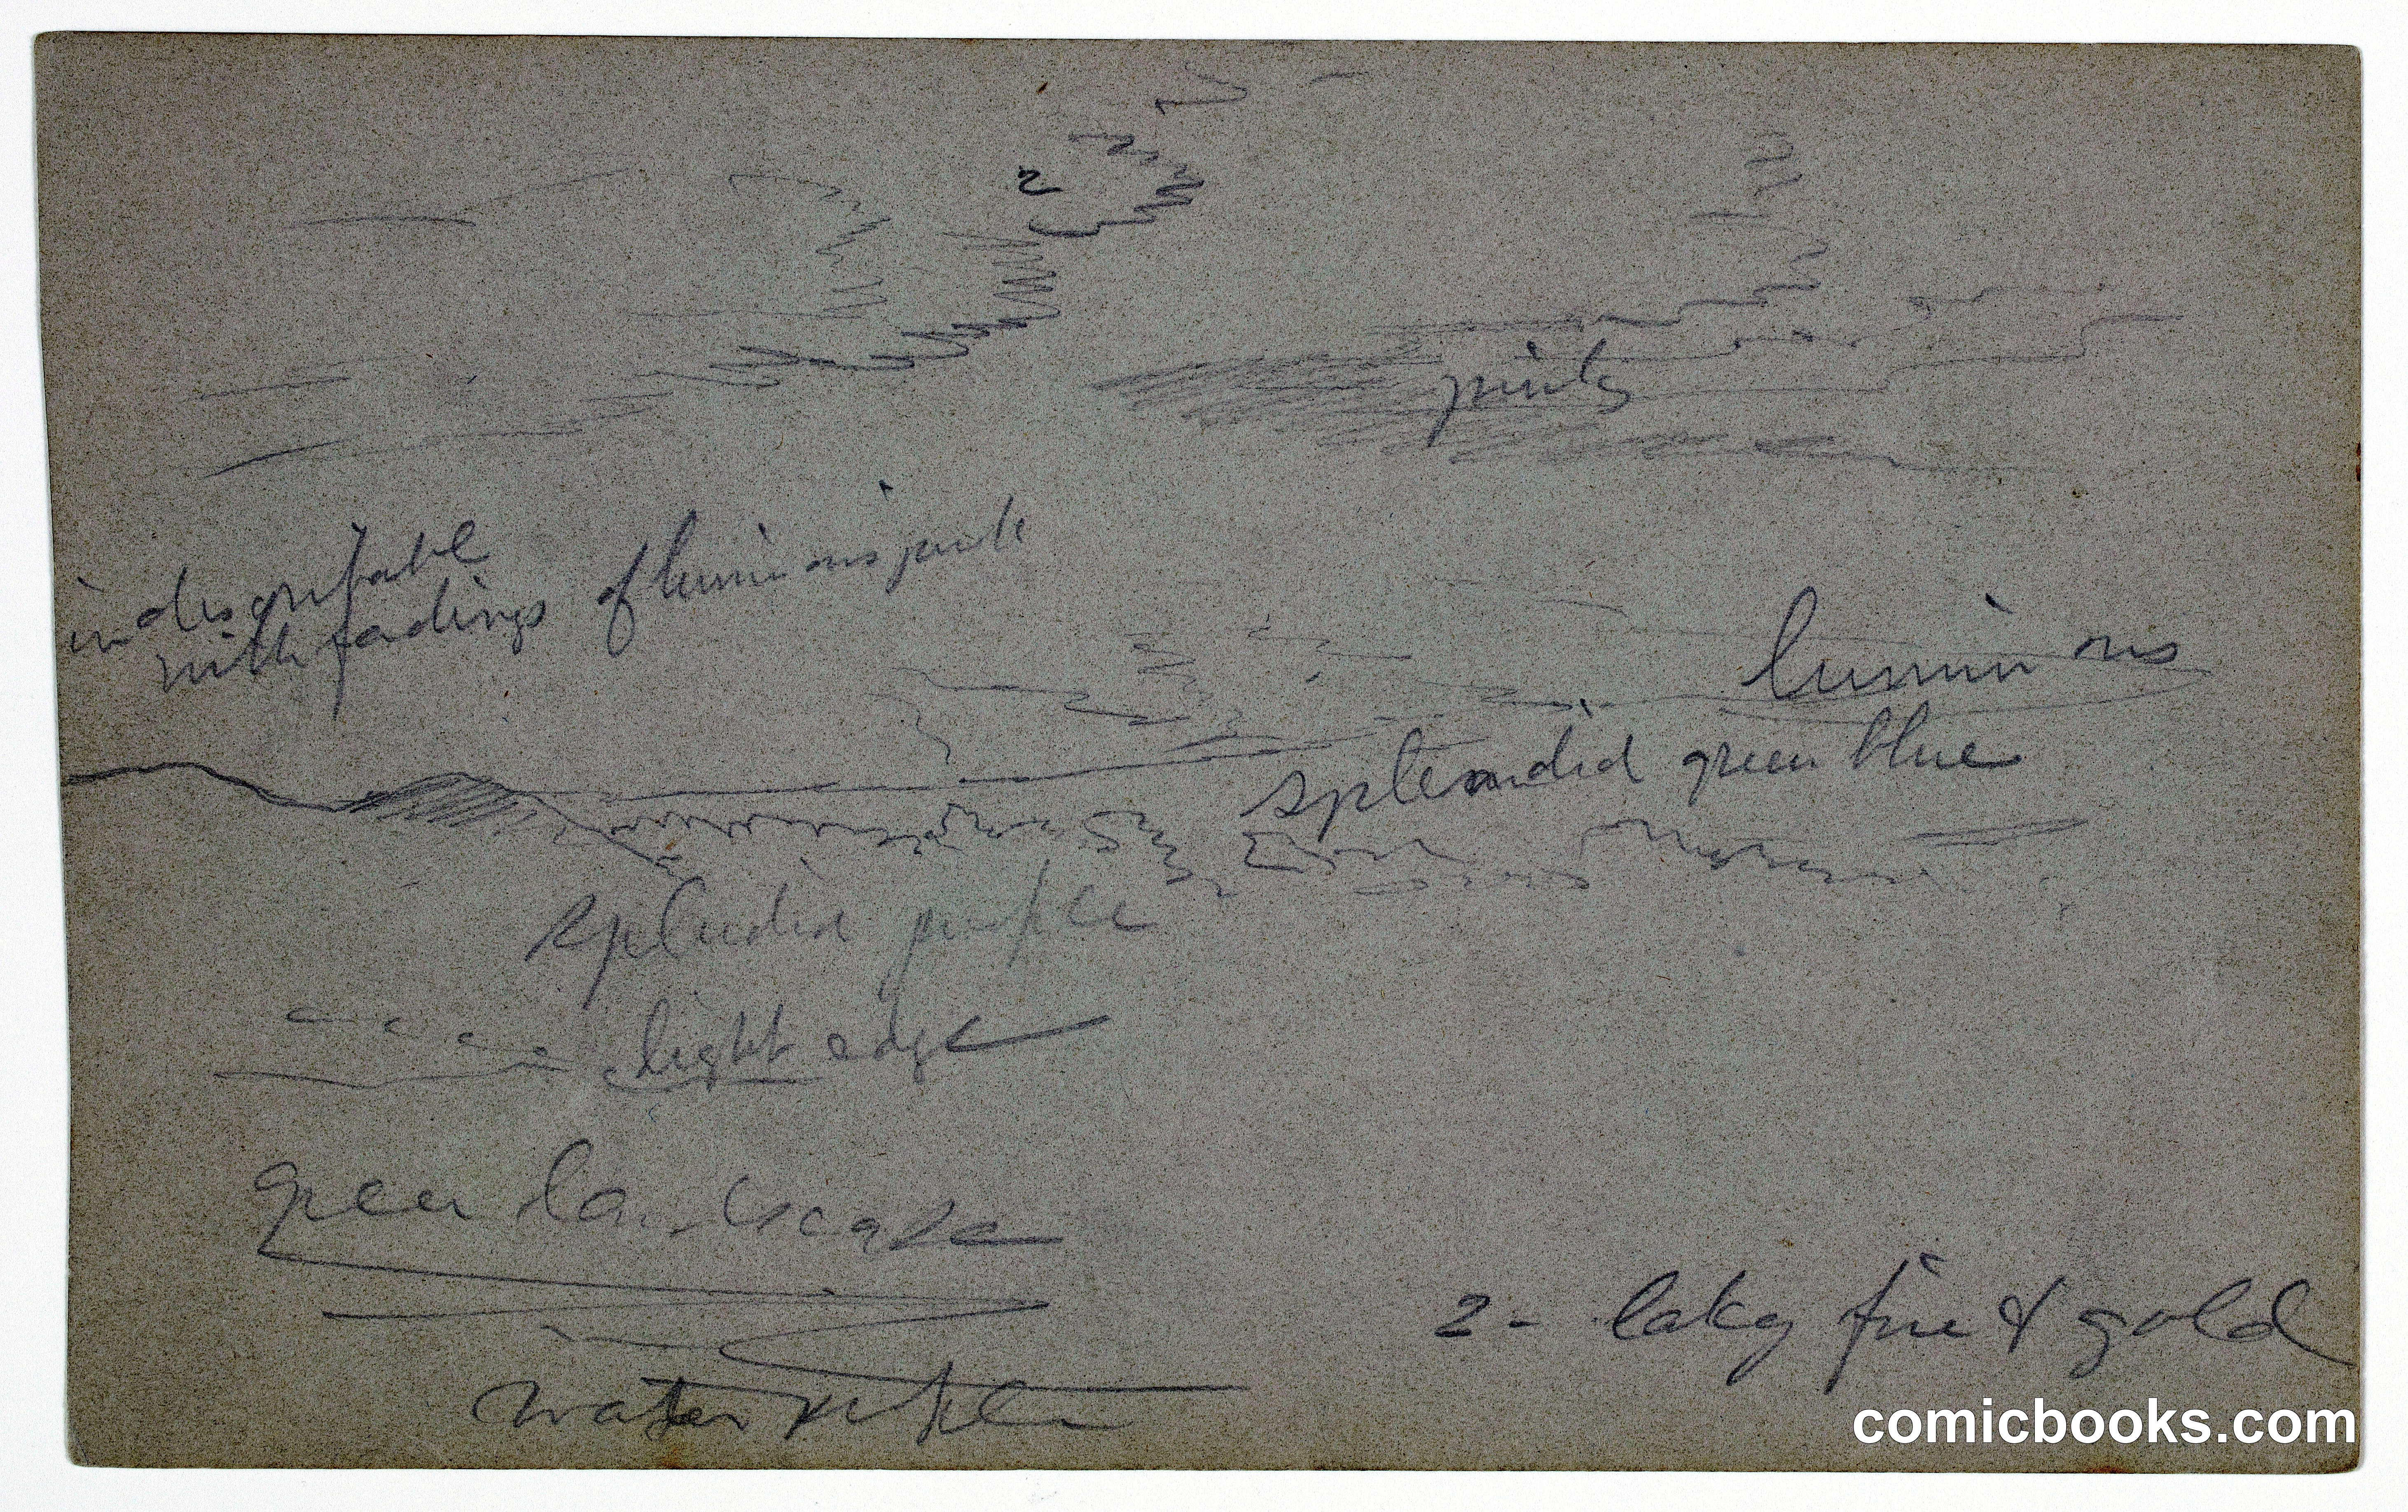 2
pink
indiscribable
with fadings of luminous pink
luminous
splendid green blue
splendid purple
light edge
green landscape
2 - laky fire & gold
water purple
comicbooks.com